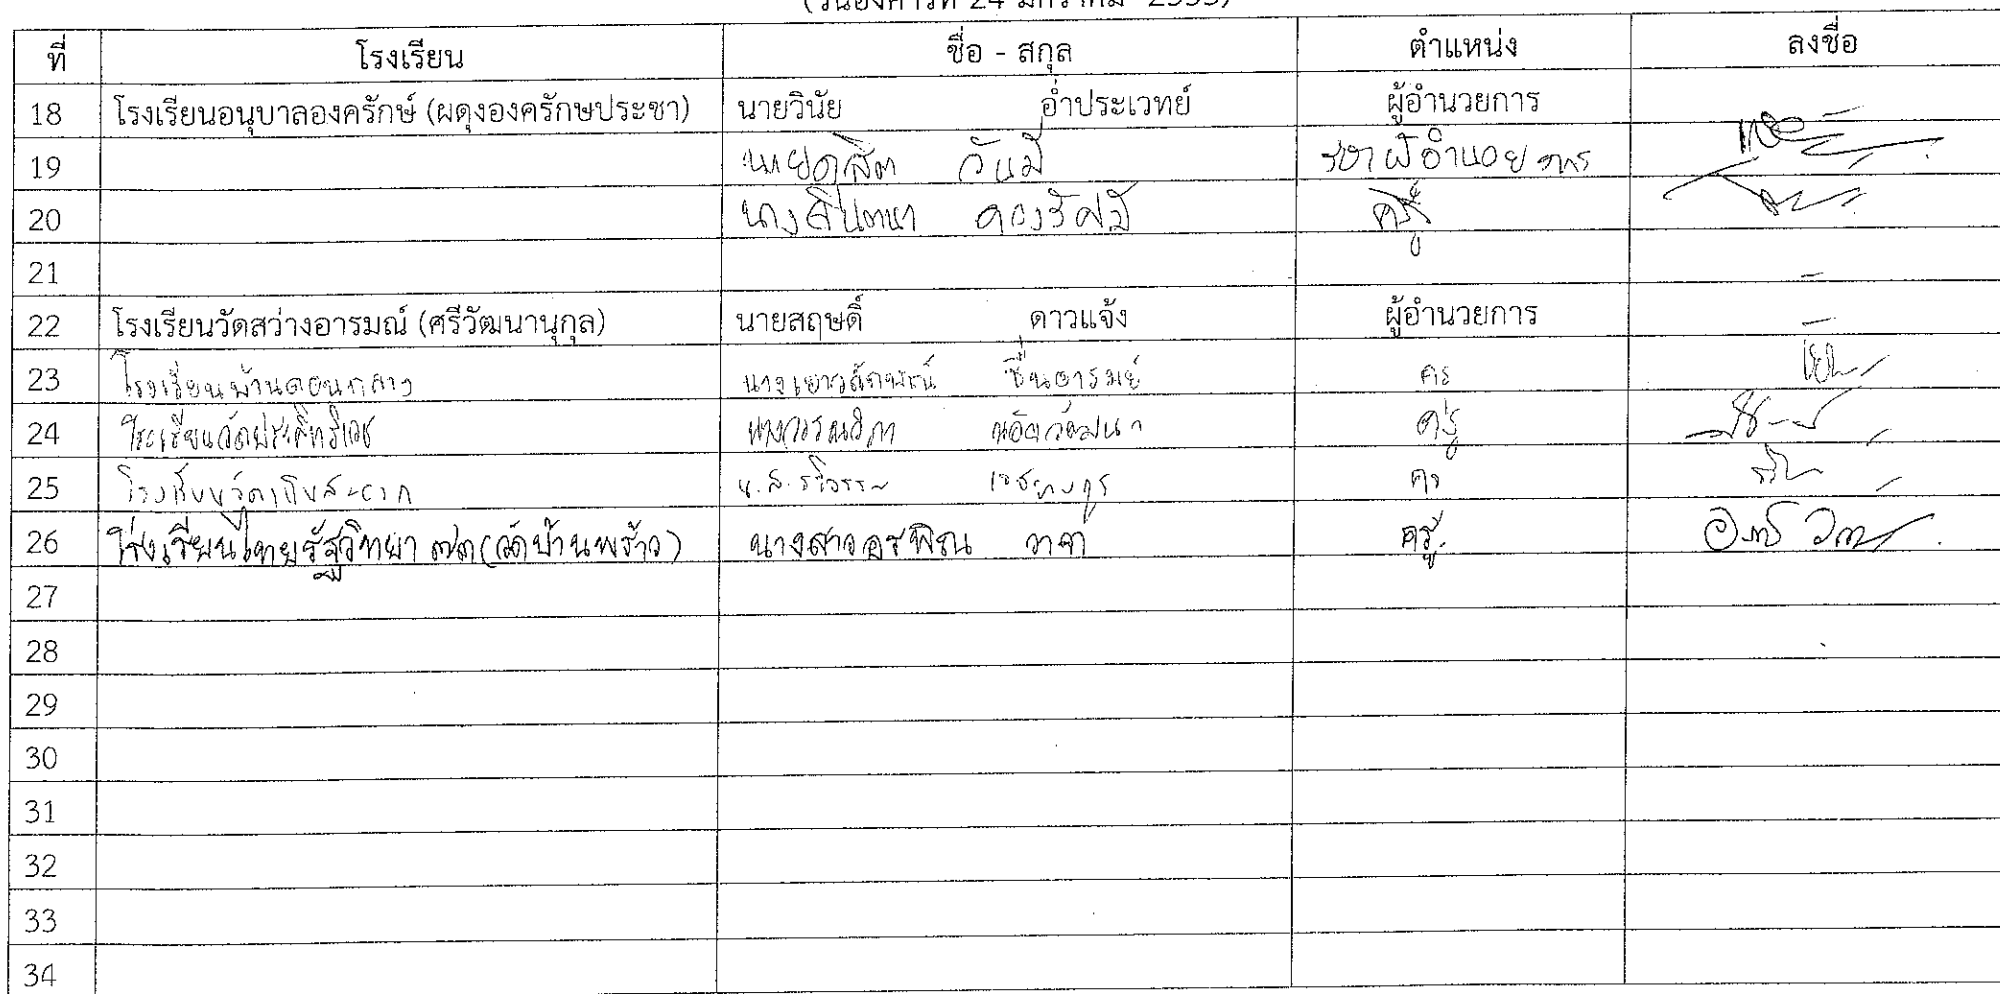 (วันอังคารที่ 24 มกราคม 2555)
ที่ โรงเรียน ชื่อ - สกุล ตำแหน่ง ลงชื่อ
18 โรงเรียนอนุบาลองครักษ์ (ผดุงองครักษประชา) นายวินัย อ่ำประเวทย์ ผู้อำนวยการ
19 นายดุสิต วันมี รองผู้อำนวยการ
20 นางจินตนา ครู
21
22 โรงเรียนวัดสว่างอารมณ์ (ศรีวัฒนานุกูล) นายสฤษดิ์ ดาวแจ้ง ผู้อำนวยการ
23 โรงเรียนบ้านดอนกลาง นางเยาวลักษณ์ ชื่นอารมย์ ครู
24 โรงเรียนวัดประสิทธิเวช นางวรรณวิภา ครู
25 น.ส. ครู
26 โรงเรียนไทยรัฐวิทยา ๗๓ (วัดบ้านพร้าว) นางสาวอรพิณ วาจา ครู
27
28
29
30
31
32
33
34